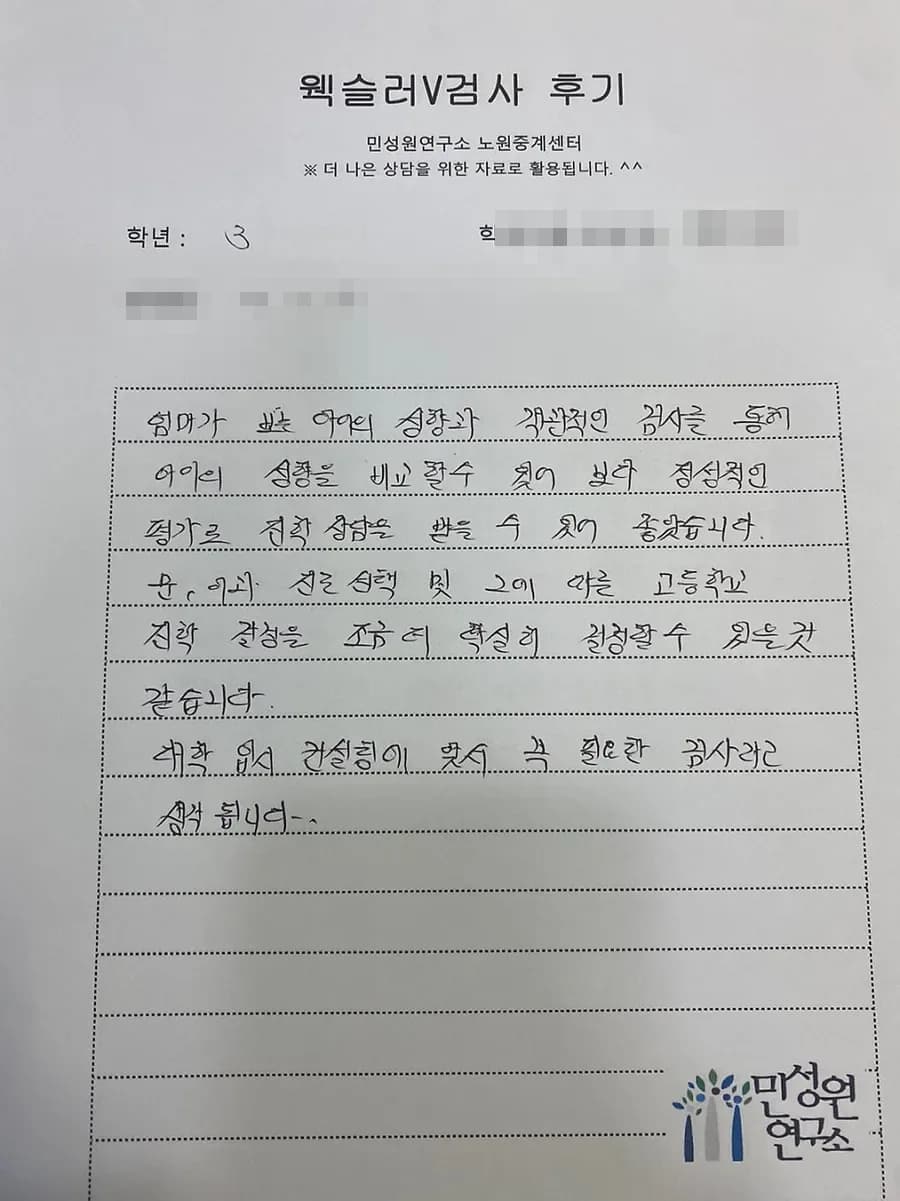 웩슬러V검사 후기
민성원연구소 노원중계센터
※ 더 나은 상담을 위한 자료로 활용됩니다. ^^
학년 : 3
학
엄마가 보는 아이의 성향과 객관적인 검사를 통해
아이의 성향을 비교 할수 있어 보다 정성적인
평가로 진학 상담을 받을 수 있어 좋았습니다.
문, 이과 진로 선택 및 그에 따른 고등학교
진학 결정을 조금 더 확실히 결정할 수 있을 것
같습니다.
대학 입시 컨설팅에 앞서 꼭 필요한 검사라고
생각 됩니다..
민성원
연구소